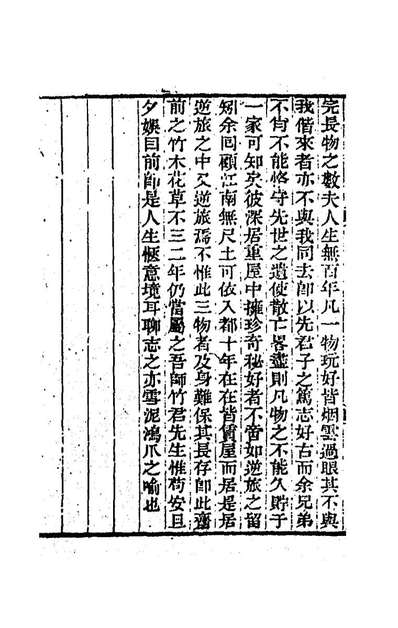 完長物之數夫人生無百年凡一物玩好皆烟雲過眼其不與
我偕來者亦不與我同去卽以先君子之篤志好古而余兄弟
不肯不能恪守先世之遺使散亡畧盡則凡物之不能久貯子
一家可知矣彼深居重屋中擁珍奇秘好者不啻如逆旅之留
矧余回顧江南無尺土可依入都十年在在皆賃屋而居是居
逆旅之中又逆旅焉不惟此三物者及身難保其長存卽此齋
前之竹木花草不三二年仍當屬之吾師竹君先生惟苟安旦
夕娛目前卽是人生愜意境耳聊志之亦雪泥鴻爪之喻也